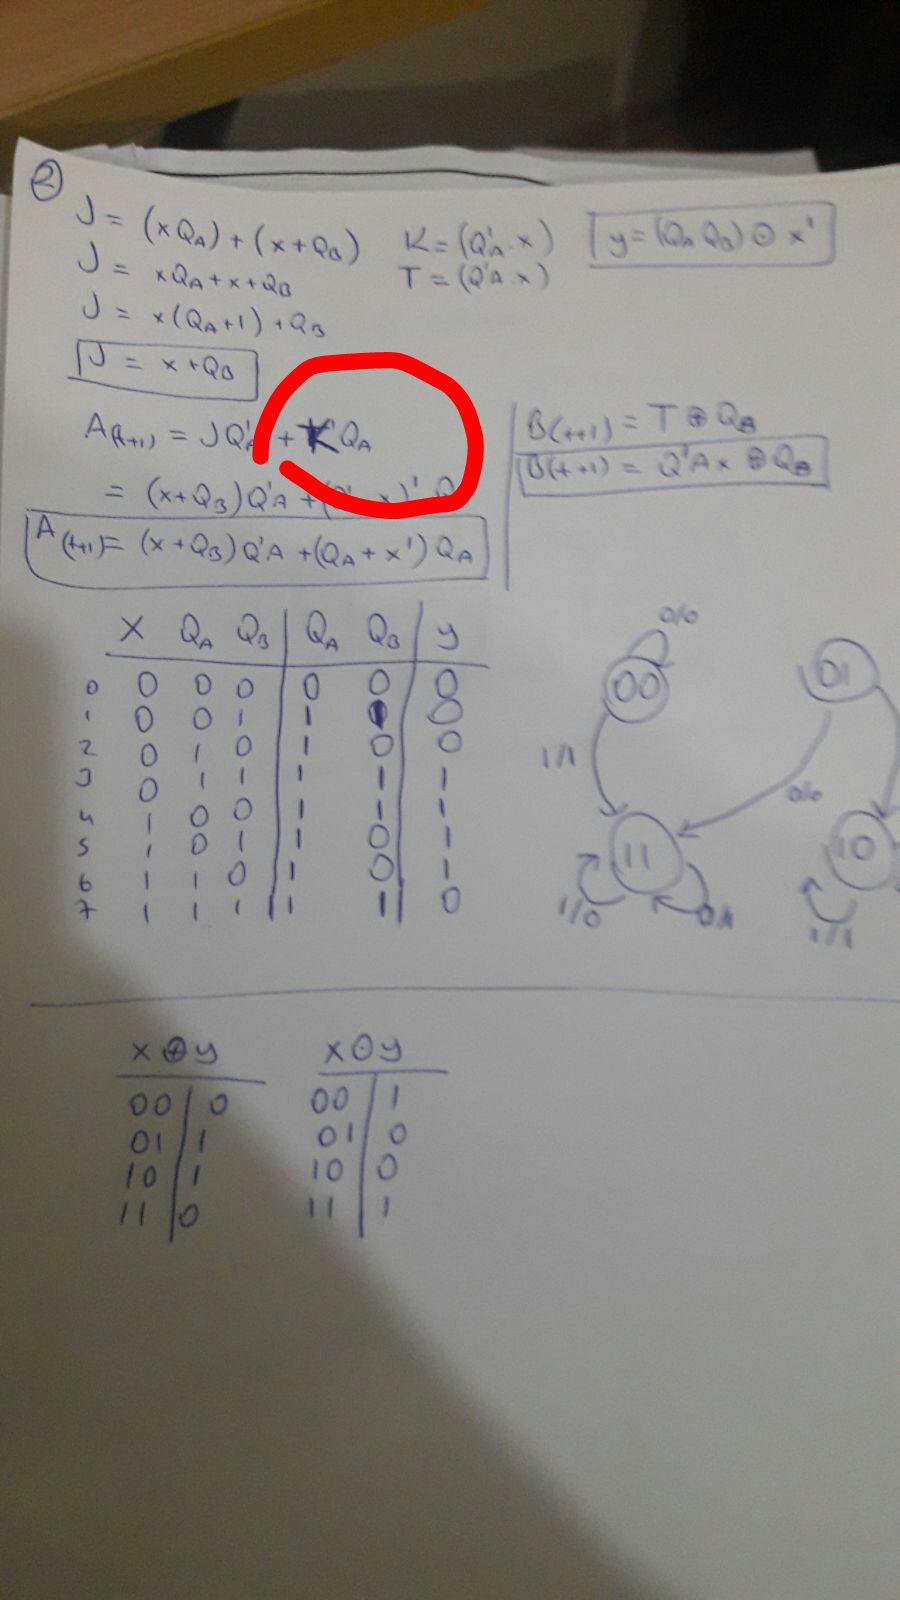 2
J = (xQA) + (x+QB) K = (Q'A·x) y = (QA QB) ⊙ x'
J = xQA + x + QB T = (Q'A·x)
J = x(QA+1) + QB
J = x+QB
A(t+1) = JQ'A + K'QA B(t+1) = T ⊕ QB
= (x+QB)Q'A + B(t+1) = Q'Ax ⊕ QB
A(t+1) = (x+QB)Q'A + (QA + x')QA
X QA QB QA QB y
0 0 0 0 0 0 0
1 0 0 1 1 0
2 0 1 0 1 0 0
3 0 1 1 1 1 1
4 1 0 0 1 1 1
5 1 0 1 1 0 1
6 1 1 0 1 0 1
7 1 1 1 1 1 0
0/0
00 01
1/1 0/0
11 10
1/0 0/1 1/1
x ⊕ y x ⊙ y
00 0 00 1
01 1 01 0
10 1 10 0
11 0 11 1